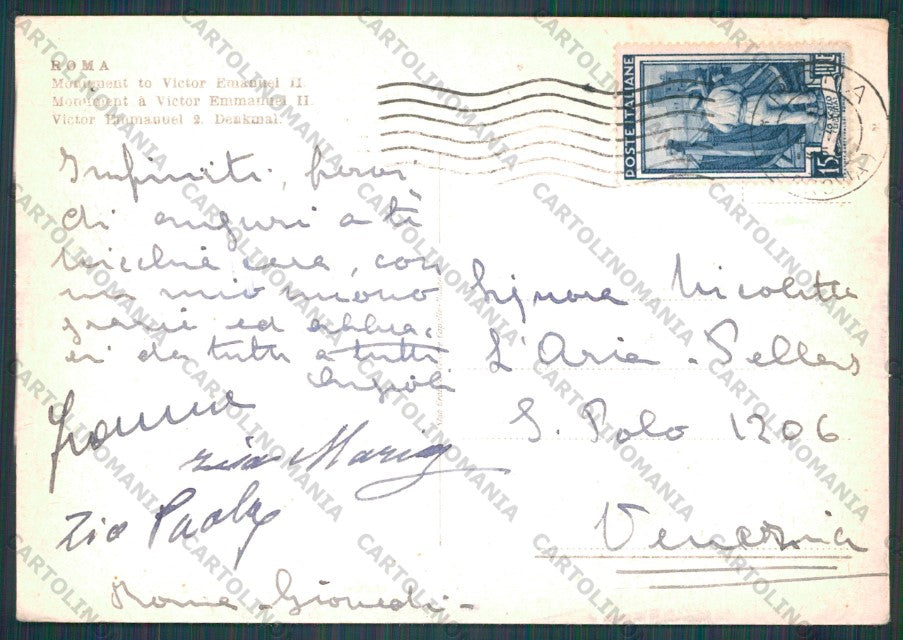 ROMA
Monument to Victor Emanuel II.
Monument à Victor Emmanuel II.
Victor Emmanuel 2. Denkmal.
POSTE ITALIANE
LIRE 15
Infiniti,
di auguri a te
cara, con
mio nuovo
grazie ed abbrac
ci da tutti a tutti
zia Maria
zio Paolo
Roma - Giovedì -
Signora Nicoletta
L'Aria - Sellers
S. Polo 1206
Venezia
CARTOLINOMANIA